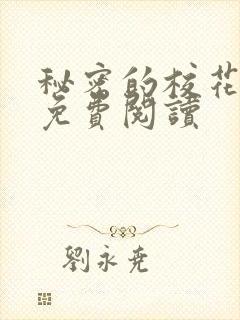 秘密的校花
免費閱讀
劉永堯